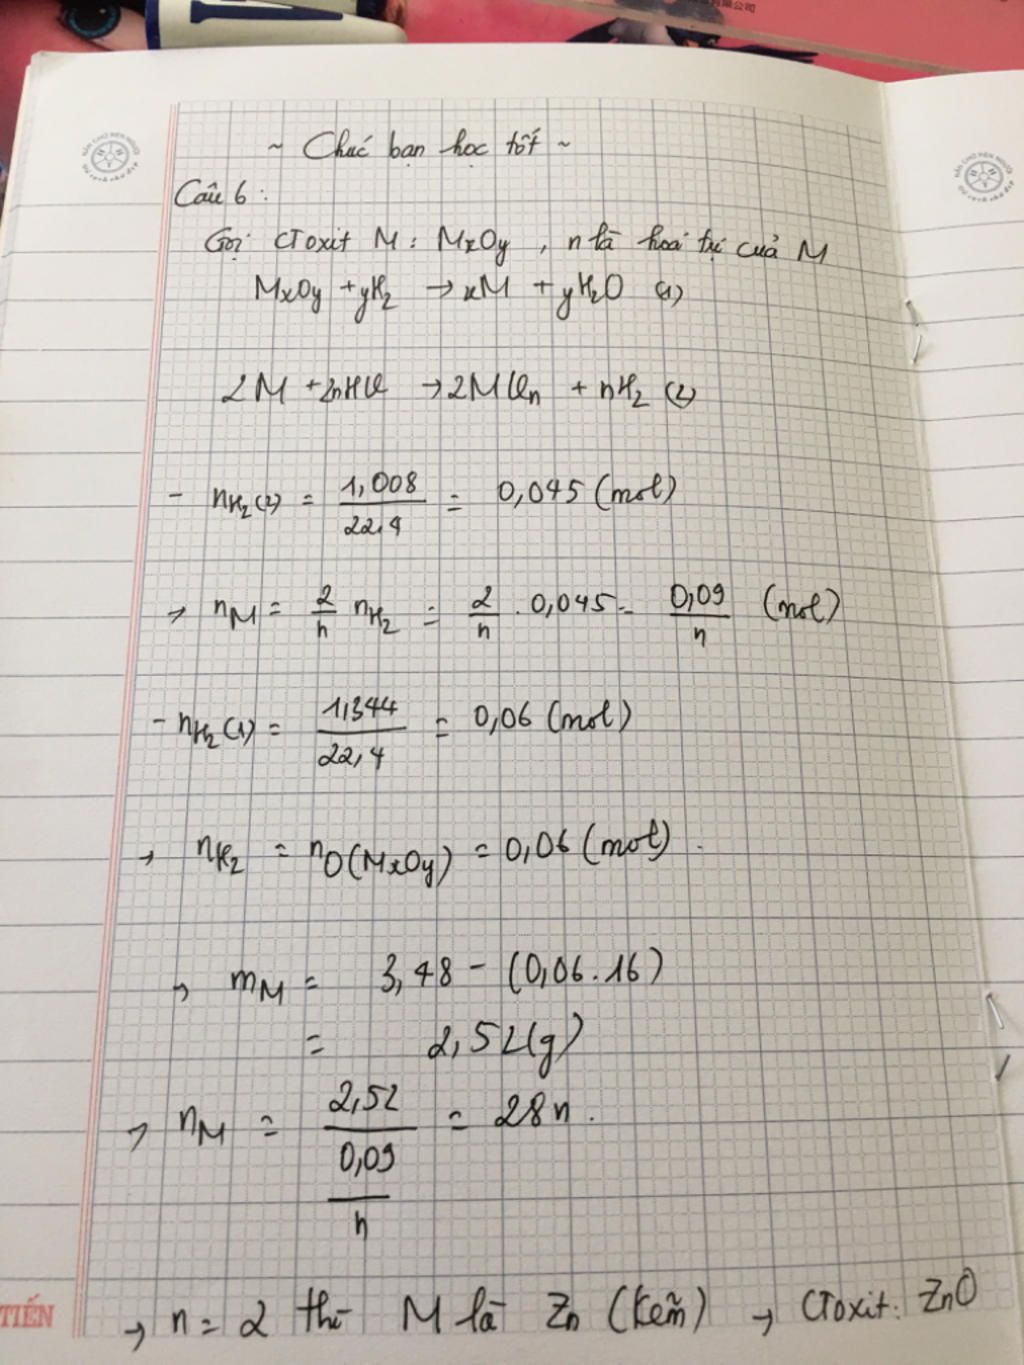 ~ Chúc bạn học tốt ~
Câu 6 :
Gọi CToxit M : MxOy , n là hoá trị của M
MxOy + yH2 → xM + yH2O (1)
2M + 2nHCl → 2MCln + nH2 (2)
- nH2 (2) = 1,008 / 22,4 = 0,045 (mol)
→ nM = 2/n nH2 = 2/n . 0,045 = 0,09/n (mol)
- nH2 (1) = 1,344 / 22,4 = 0,06 (mol)
→ nH2 = nO(MxOy) = 0,06 (mol) .
→ mM = 3,48 - (0,06 . 16)
= 2,52 (g)
→ nM = 2,52 / (0,09/n) = 28n .
→ n = 2 thì M là Zn (kẽm) → CToxit : ZnO
TIẾN